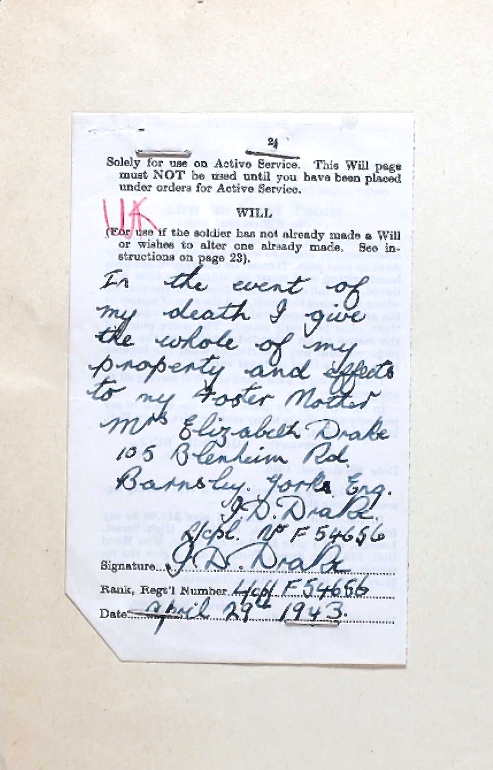 24
Solely for use on Active Service. This Will page
must NOT be used until you have been placed
under orders for Active Service.
WILL
UK
(For use if the soldier has not already made a Will
or wishes to alter one already made. See in-
structions on page 23).
In the event of
my death I give
the whole of my
property and effects
to my Foster Mother
Mrs Elizabeth Drake
105 Blenheim Rd.
Barnsley. Yorks. Eng.
J. D. Drake.
L/cpl. No F54656
Signature... J. D. Drake
Rank, Regt'l Number L/cpl F54656
Date... April 29th 1943.